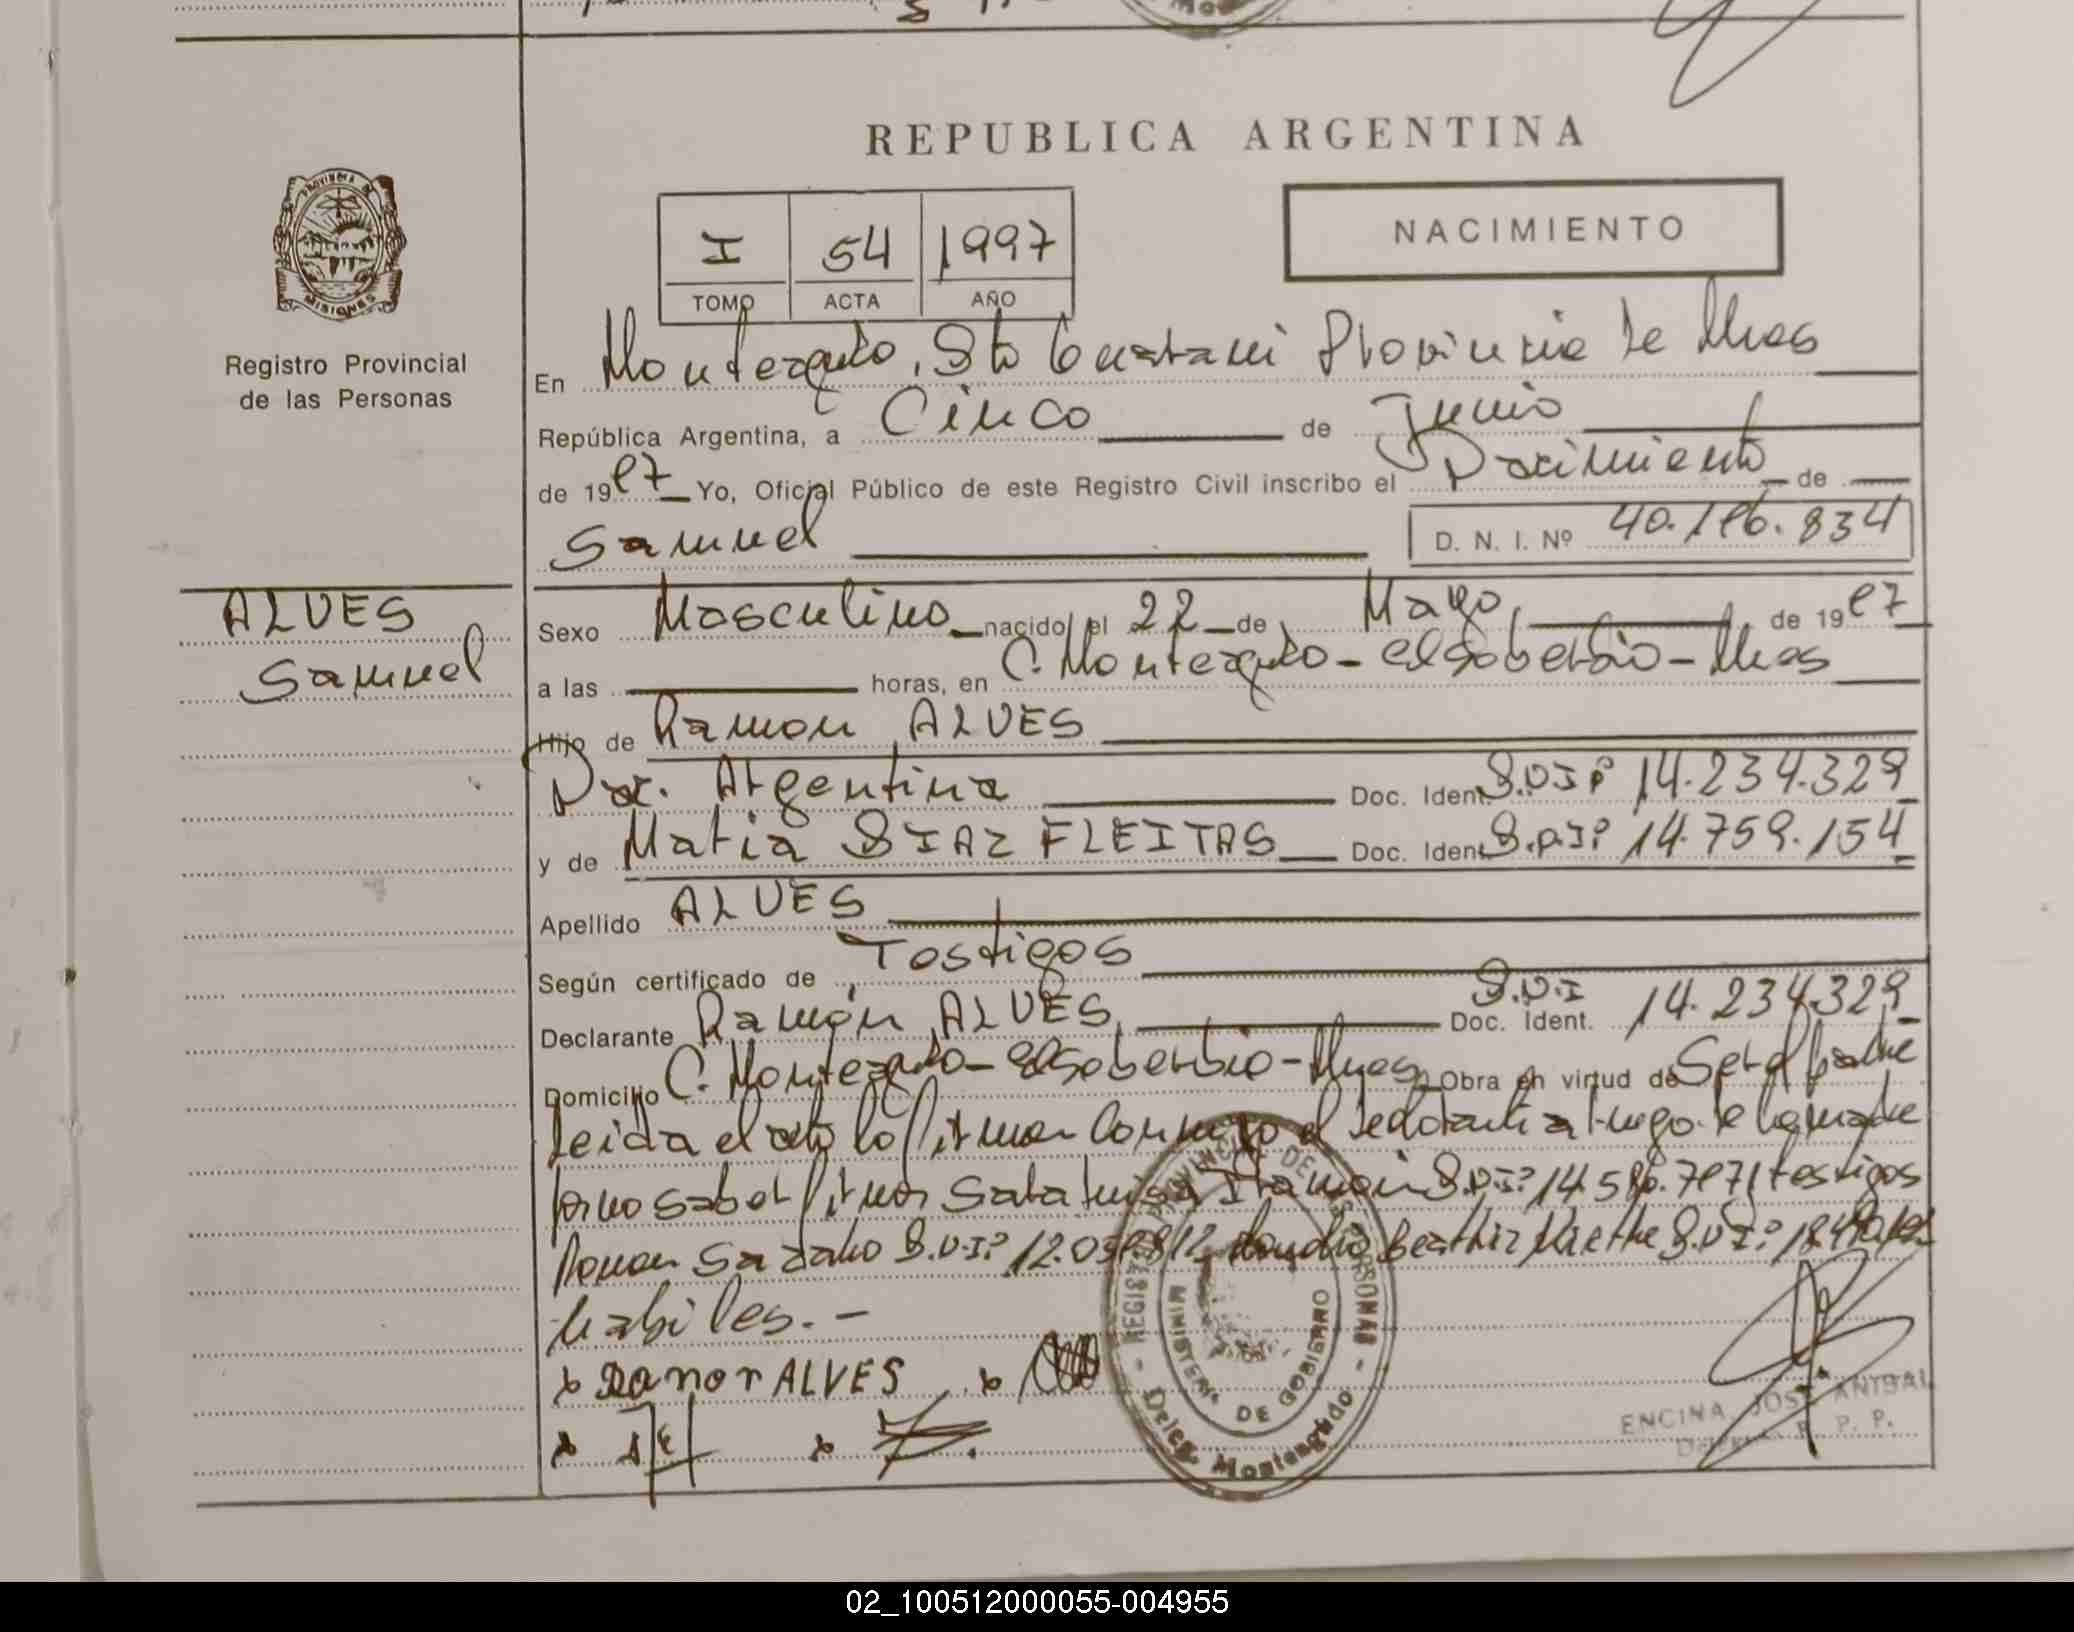 REPUBLICA ARGENTINA
PROVINCIA DE MISIONES
Registro Provincial
de las Personas
I 54 1997
TOMO ACTA AÑO
NACIMIENTO
En Montegudo, Dto Guarani Provincia de Mnes
República Argentina, a Cinco de Junio
de 1997 Yo, Oficial Público de este Registro Civil inscribo el Nacimiento de
Samuel D. N. I. Nº 40.196.834
ALVES
Samuel
Sexo Masculino nacido el 22 de Mayo de 1997
a las horas, en C. Monteagudo - El Soberbio - Mnes
Hijo de Ramon ALVES
Nac. Argentina Doc. Ident. D.N.Iº 14.234.329
y de Maria DIAZ FLEITAS Doc. Ident. D.N.Iº 14.759.154
Apellido ALVES
Según certificado de Testigos
Declarante Ramón ALVES Doc. Ident. D.N.I 14.234.329
Domicilio C. Monteagudo - El Soberbio - Mnes Obra en virtud de Ser el padre
Leida el acta la firman conmigo el declarante a ruego de la madre
por no saber firmar Sara Luisa D.N.Iº testigos
D.N.Iº 12. Beatriz D.N.Iº
habiles.-
x Ramon ALVES x
x x
REGISTRO PROVINCIAL DE LAS PERSONAS
MINISTERIO DE GOBIERNO
Deleg. Monteagudo
ENCINA, JOSE ANIBAL
R. P. P.
02_100512000055-004955